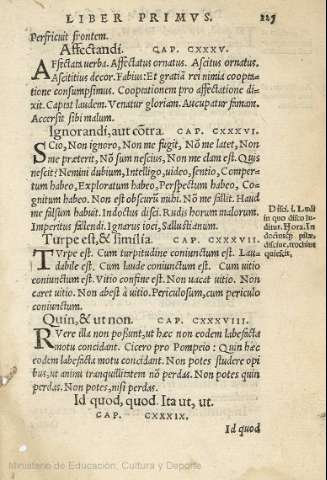 LIBER PRIMVS. 225
Perfricuit frontem.
Affectandi. CAP. CXXXV.
AFfectata uerba. Affectatus ornatus. Ascitus ornatus.
Ascititius decor. Fabius: Et gratiā rei nimia cooptatione
consumpsimus. Cooptationem pro affectatione dixit.
Captat laudem. Venatur gloriam. Aucupatur famam.
Accersit sibi malum.
Ignorandi, aut cōtra. CAP. CXXXVI.
SCio, Non ignoro, Non me fugit, Nō me latet, Non
me præterit, Nō sum nescius, Non me clam est. Quis
nescit? Nemini dubium, Intelligo, uideo, sentio, Compertum
habeo, Exploratum habeo, Perspectum habeo, Cognitum
habeo. Non est obscurū mihi. Nō me fallit. Haud
me falsum habuit. Indoctus disci. Rudis horum malorum.
Imperitus fallendi. Ignarus ioci, Sallustianum.
Disci. I. Ludi
in quo disco luditur.
Hora. In
doctusq; pilæ,
disciue, trochiue
quiescit,
Turpe est, & similia. CAP. CXXXVII.
TVrpe est. Cum turpitudine coniunctum est. Laudabile
est. Cum laude coniunctum est. Cum uitio
coniunctum est. Vitio confine est. Non uacat uitio. Non
caret uitio. Non abest à uitio. Periculosum, cum periculo
coniunctum.
Quin, & ut non. CAP. CXXXVIII.
RVere illa non possunt, ut hæc non eodem labefacta
motu concidant. Cicero pro Pompeio: Quin hæc
eodem labefacta motu concidant. Non potes studere opibus,
ut animi tranquillitatem nō perdas. Non potes quin
perdas. Non potes, nisi perdas.
Id quod, quod. Ita ut, ut.
CAP. CXXXIX.
Id quod
Ministerio de Educación, Cultura y Deporte